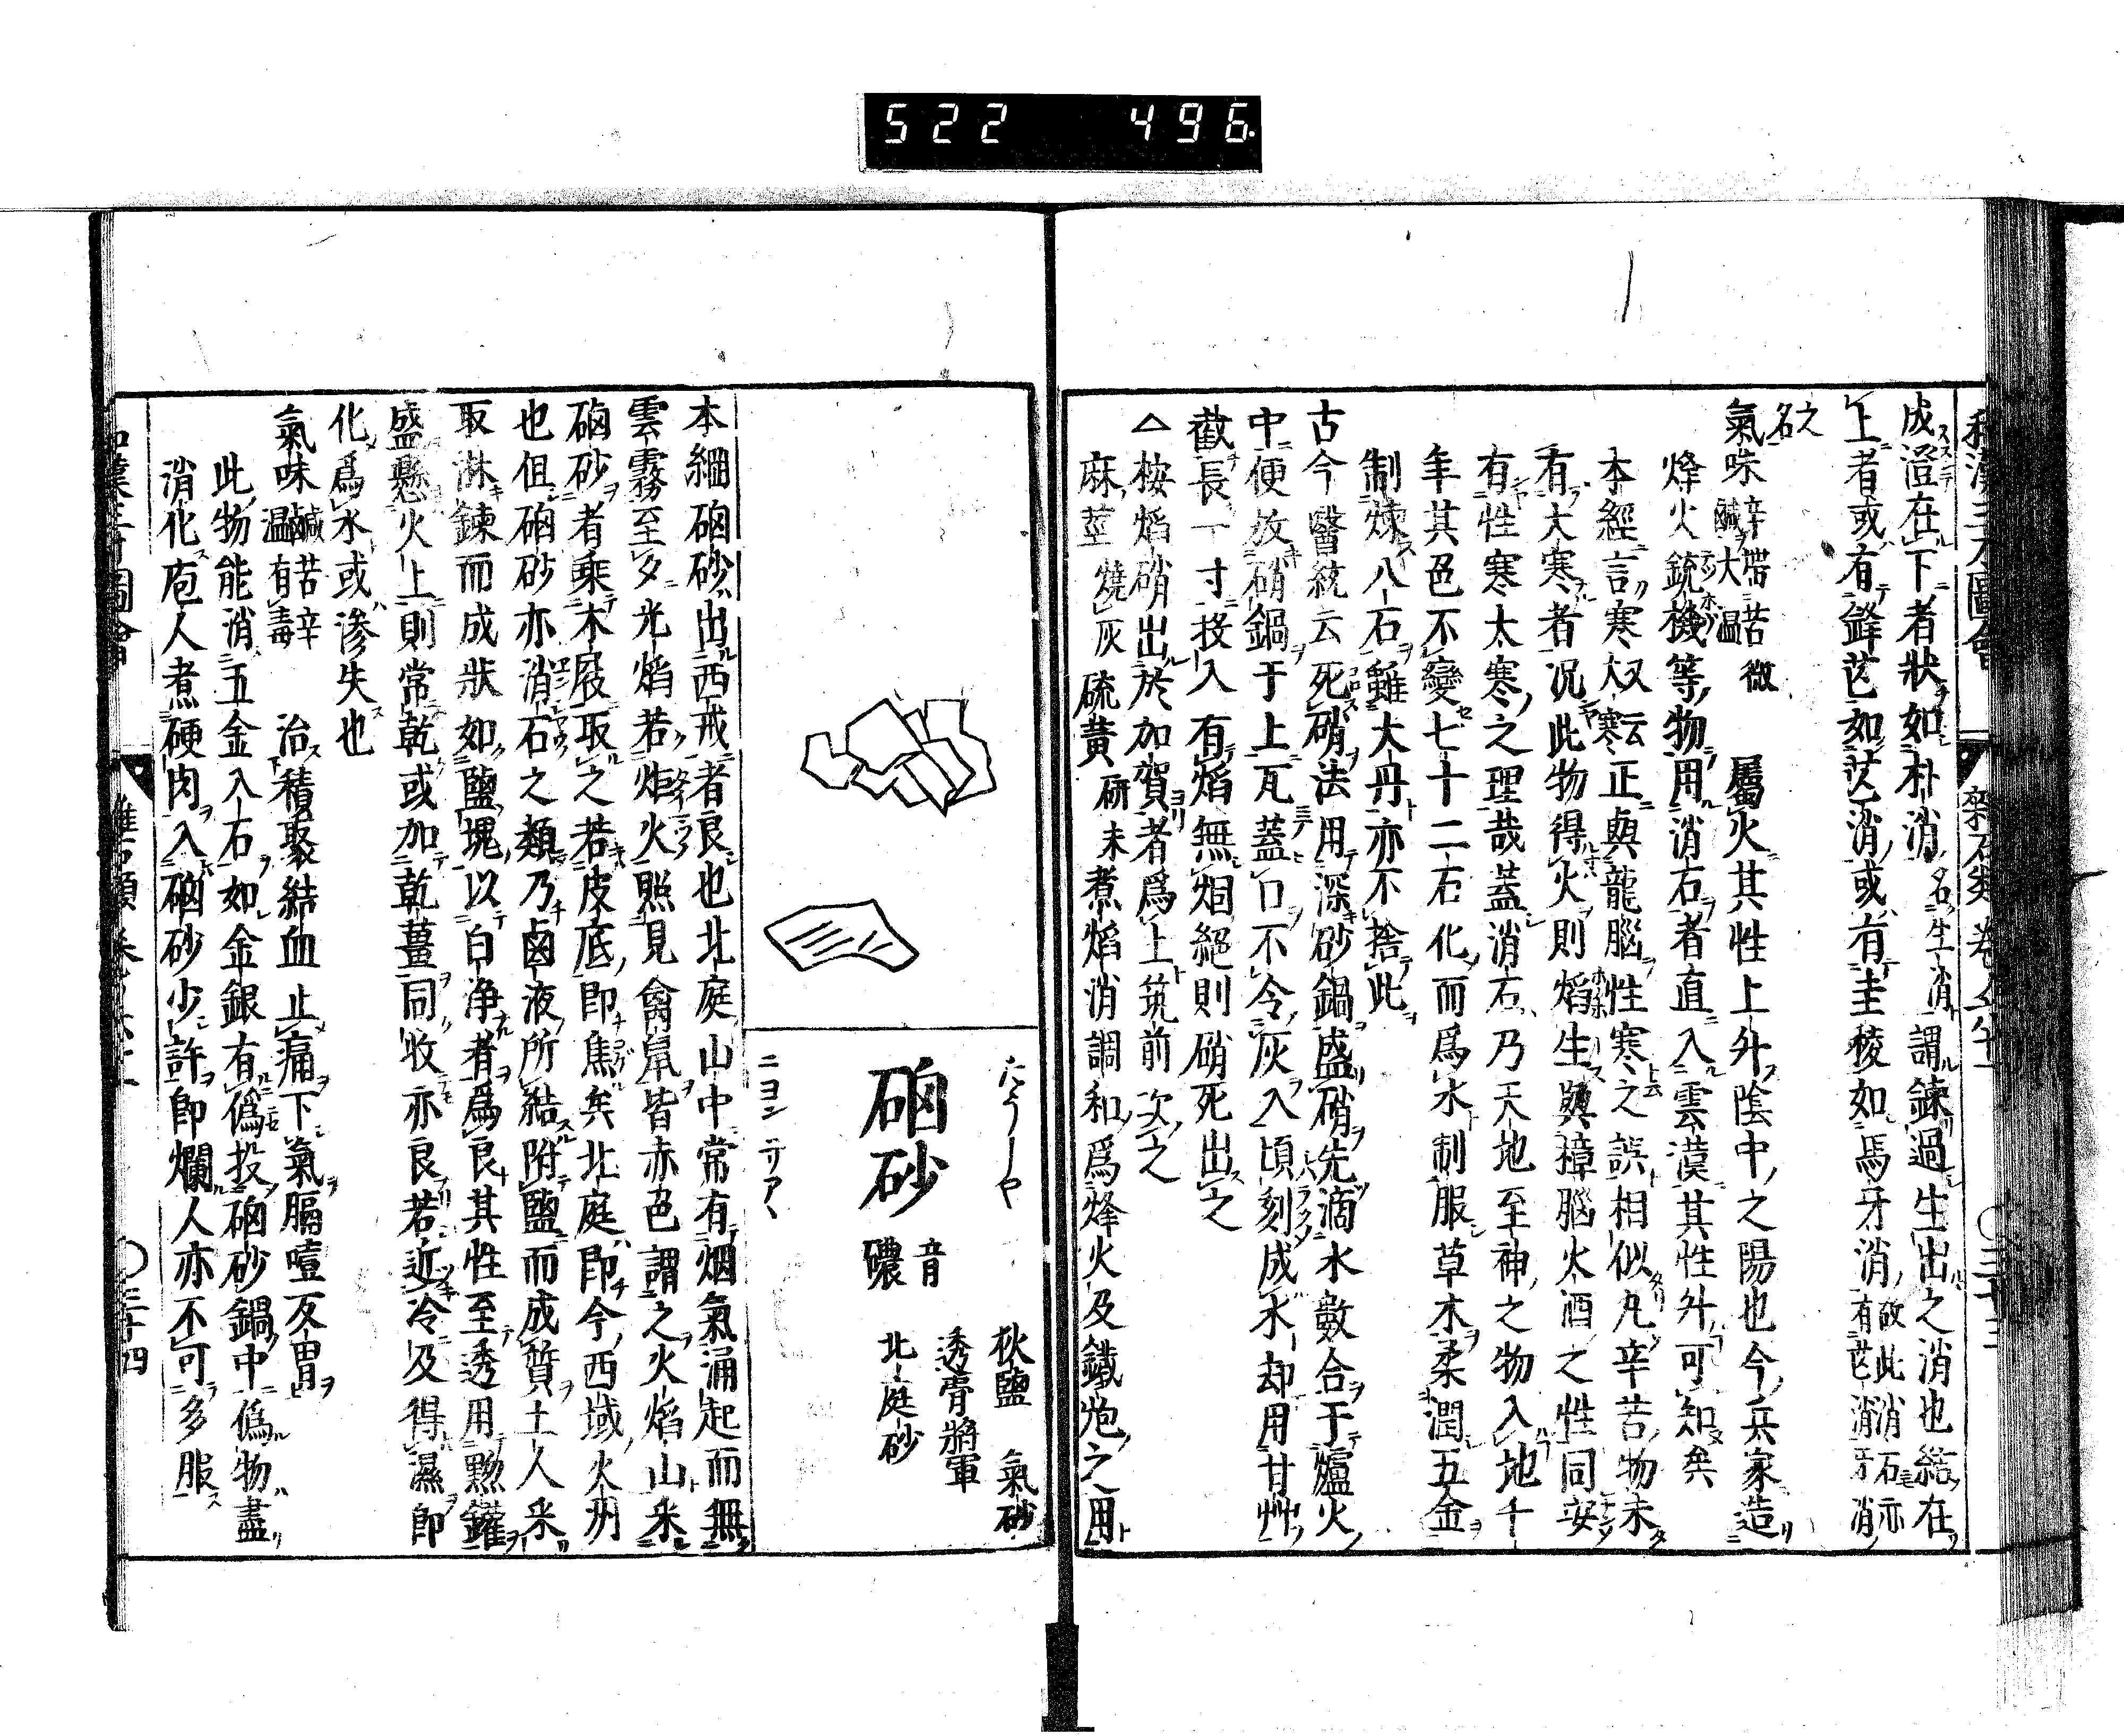 522 496
和漢三才圖會 雜石類 卷六十一 〇三十三
成澄在下者狀如朴消名生消謂鍊過生出之消也結在
上者或有鋒芒如芒消或有圭稜如馬牙消故此消石亦有芒消牙消
之名
氣味辛苦微鹹帶大温 屬火其性上升陰中之陽也今兵家造
烽火銃機等物用消石者直入雲漢其性升可知矣
本經言寒又云大寒正與龍腦性寒之誤相似凡辛苦物未
有大寒者況此物得火則焰生與樟腦火酒之性同安
有性寒太寒之理哉蓋消石乃天地至神之物入地千
年其色不變七十二石化而爲水制服草木柔潤五金
制煉八石雖大丹亦不捨此
古今醫統云死硝法用深砂鍋盛硝先滴水數合于爐火
中便放硝鍋于上瓦蓋口不令灰入頃刻成水却用甘艸
截長一寸投入有焰無烟絕則硝死出之
△桉焰硝出於加賀者爲上筑前次之
麻莖燒灰硫黄研末煮焰消調和爲烽火及鐵炮之用
たうしや
硇砂 音磠
ニヨン
狄鹽 氣砂
透骨將軍
北庭砂
本綱硇砂出西戎者良也北庭山中常有烟氣涌起而無
雲霧至夕光焰若炬火照見禽鼠皆赤色謂之火焰山采
硇砂者乘木屐取之若皮底即焦矣北庭即今西域火州
也但硇砂亦消石之類乃鹵液所結附鹽而成質土人采
取淋鍊而成狀如鹽塊以白净者爲良其性至透用黝鑵
盛懸火上則常乾或加乾薑同收亦良若近冷及得濕即
化爲水或滲失也
氣味鹹苦辛温有毒 治積聚結血止痛下氣膈噎反胃
此物能消五金入石如金銀有僞投硇砂鍋中僞物盡
消化庖人煮硬肉入硇砂少許即爛人亦不可多服
和漢三才圖會 雜石類 卷六十一 〇三十四